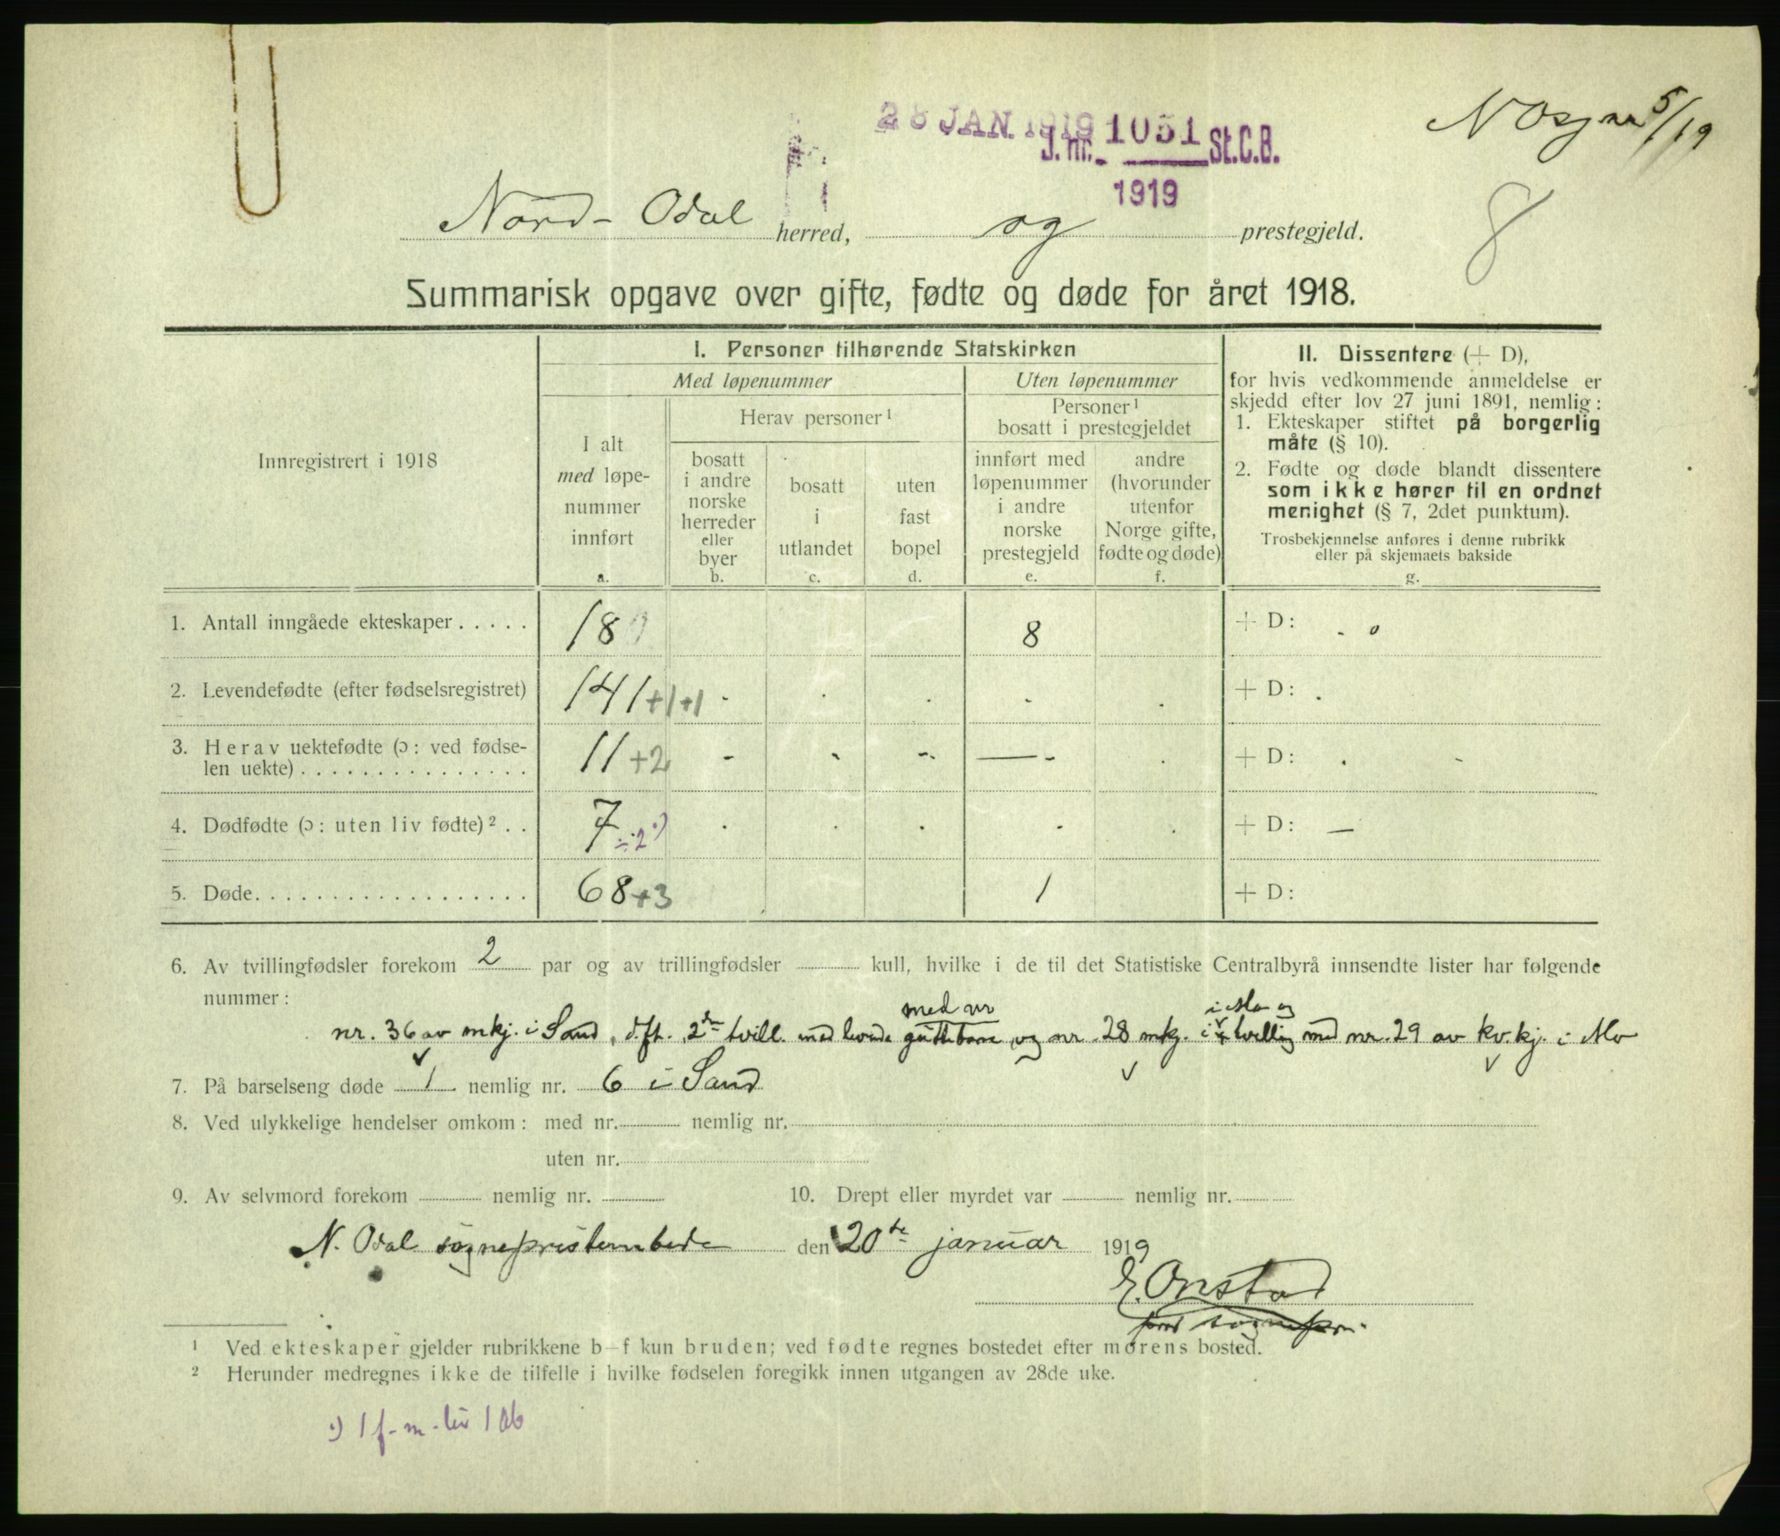 28 JAN 1919
J. nr. 1051 St.C.B.
1919
5/19
8
Nord-Odal herred, og prestegjeld.
Summarisk opgave over gifte, fødte og døde for året 1918.
Innregistrert i 1918
I. Personer tilhørende Statskirken
Med løpenummer
Uten løpenummer
I alt
med løpe-
nummer
innført
a.
Herav personer¹
bosatt
i andre
norske
herreder
eller
byer
b.
bosatt
i
utlandet
c.
uten
fast
bopel
d.
Personer¹
bosatt i prestegjeldet
innført med
løpenummer
i andre
norske
prestegjeld
e.
andre
(hvorunder
utenfor
Norge gifte,
fødte og døde)
f.
II. Dissentere (+ D),
for hvis vedkommende anmeldelse er
skjedd efter lov 27 juni 1891, nemlig:
1. Ekteskaper stiftet på borgerlig
måte (§ 10).
2. Fødte og døde blandt dissentere
som ikke hører til en ordnet
menighet (§ 7, 2det punktum).
Trosbekjennelse anføres i denne rubrikk
eller på skjemaets bakside
g.
1. Antall inngåede ekteskaper . . . . . 18 8 + D: . 0
2. Levendefødte (efter fødselsregistret) 141 +1+1 - . . . . + D: .
3. Herav uektefødte (ɔ: ved fødse-
len uekte) . . . . . . . . . . . . . . . 11 +2 - - - — - . + D: .
4. Dødfødte (ɔ: uten liv fødte)² . . 7 ÷2 ·) . . . . . + D: —
5. Døde. . . . . . . . . . . . . . . . . . 68 +3 1 + D:
6. Av tvillingfødsler forekom 2 par og av trillingfødsler kull, hvilke i de til det Statistiske Centralbyrå innsendte lister har følgende
nummer:
med nr i Mo og
nr. 36 av mkj. i Sand, d.ft. 2de tvill. med levende guttebarn, og nr. 28 mkj. i tvilling med nr. 29 av kv.kj. i Mo
7. På barselseng døde 1 nemlig nr. 6 i Sand
8. Ved ulykkelige hendelser omkom: med nr. nemlig nr.
uten nr.
9. Av selvmord forekom nemlig nr. 10. Drept eller myrdet var nemlig nr.
N. Odal sogneprestembede den 20de januar 1919
E. Onstad
sognepr.
¹ Ved ekteskaper gjelder rubrikkene b-f kun bruden; ved fødte regnes bostedet efter morens bosted.
² Herunder medregnes ikke de tilfelle i hvilke fødselen foregikk innen utgangen av 28de uke.
·) 1 f. m. liv 1 ab